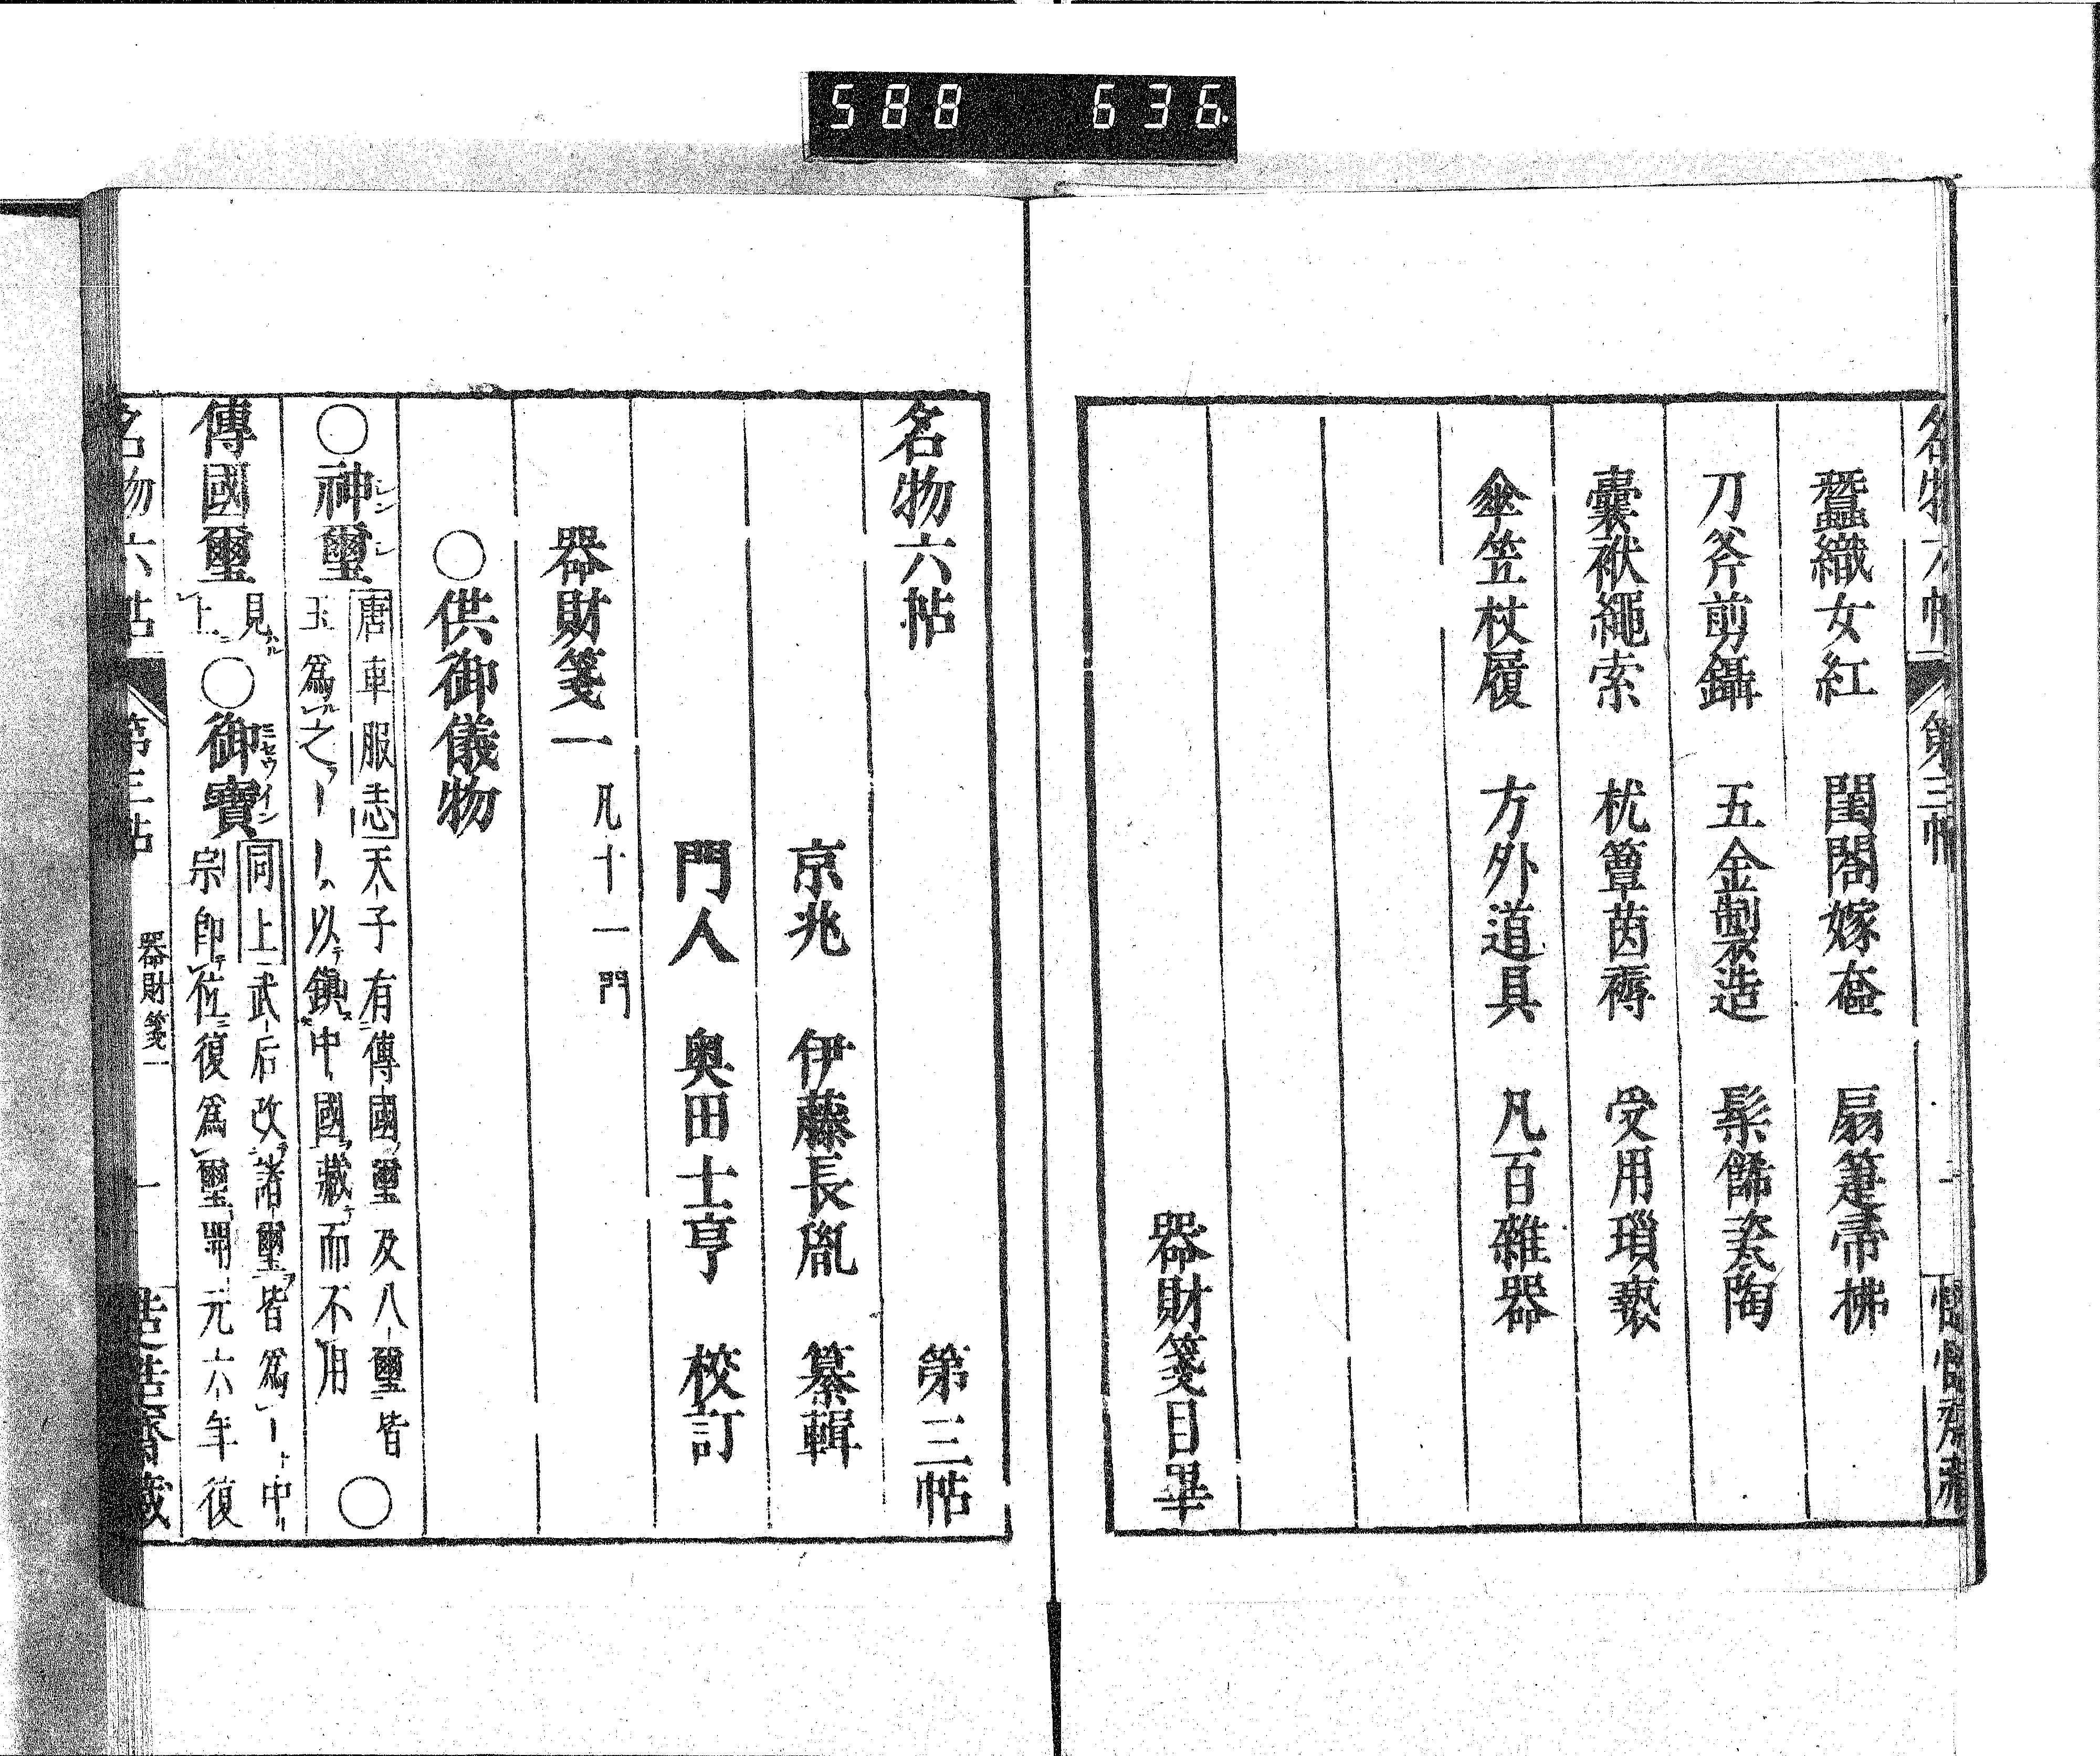 588 636
蠶織女紅 閨閤嫁奩 扇箑帚拂
刀斧剪鑷 五金製造 髹飾瓷陶
囊袱繩索 枕簟茵褥 受用瑣褻
傘笠杖履 方外道具 凡百雜器
器財箋目畢
名物六帖 第三帖
京兆 伊藤長胤 纂輯
門人 奥田士亨 校訂
器財箋一 凡十一門
〇供御儀物
〇神璽 唐車服志天子有傳國璽及八璽皆
玉爲之――以鎮中國藏而不用 〇
傳國璽 見上 〇御寶 同上武后改諸璽皆爲―中
宗即位復爲璽開元六年復
名物六帖 第三帖 器財箋一 一